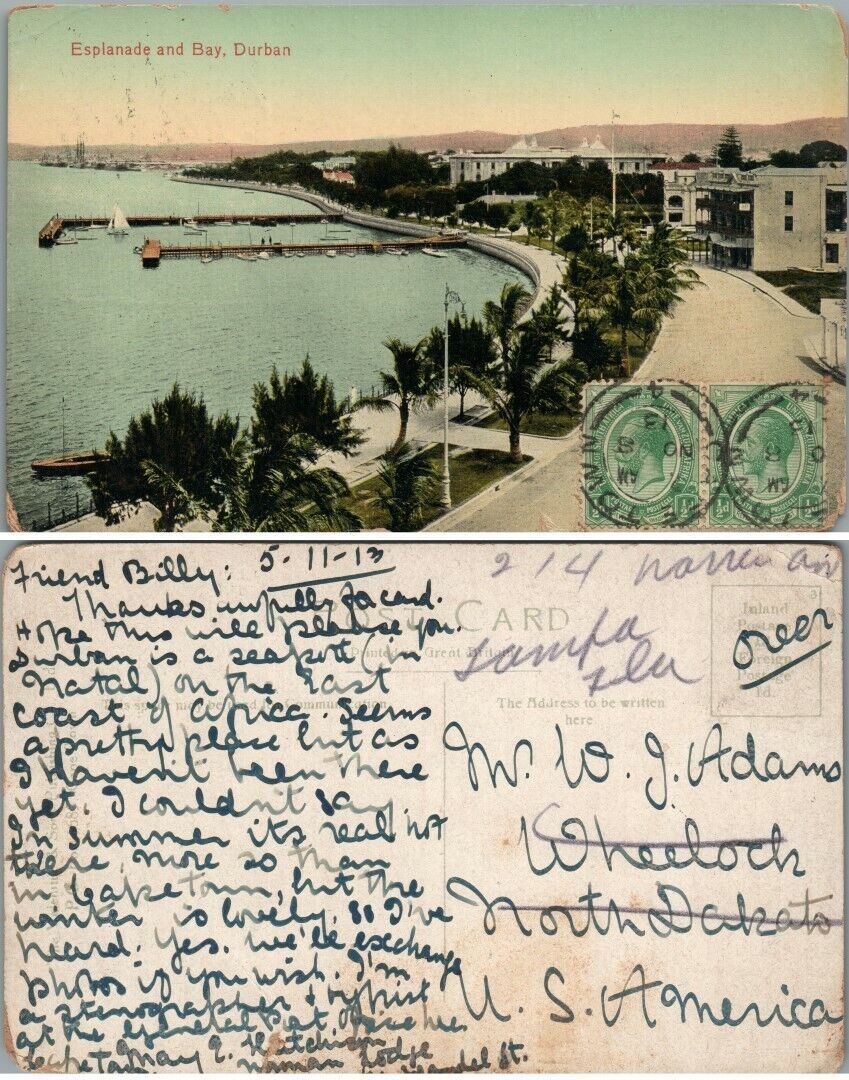 Esplanade and Bay, Durban
Friend Billy: 5-11-13
Thanks awfully for card.
Hope this will please you.
Durban is a seaport (in
Natal) on the East
Coast of Africa. Seems
a pretty place but as
I haven't been there
yet. I couldn't say.
In summer its real hot
there more so than
in Capetown, but the
winter is lovely. So I've
heard. Yes. we'll exchange
photos if you wish. I'm
a stenographer & typist
at the General Post Office here
Capetown. May E. Hutchison
Lodge
St.
POST CARD
Printed in Great Britain
This space may be used for Communication.
The Address to be written
here.
Inland
Postage
½d.
Foreign
Postage
1d.
over
214 Warren av
Tampa
Fla
Mr. W. J. Adams
Wheelock
North Dakota
U. S. America